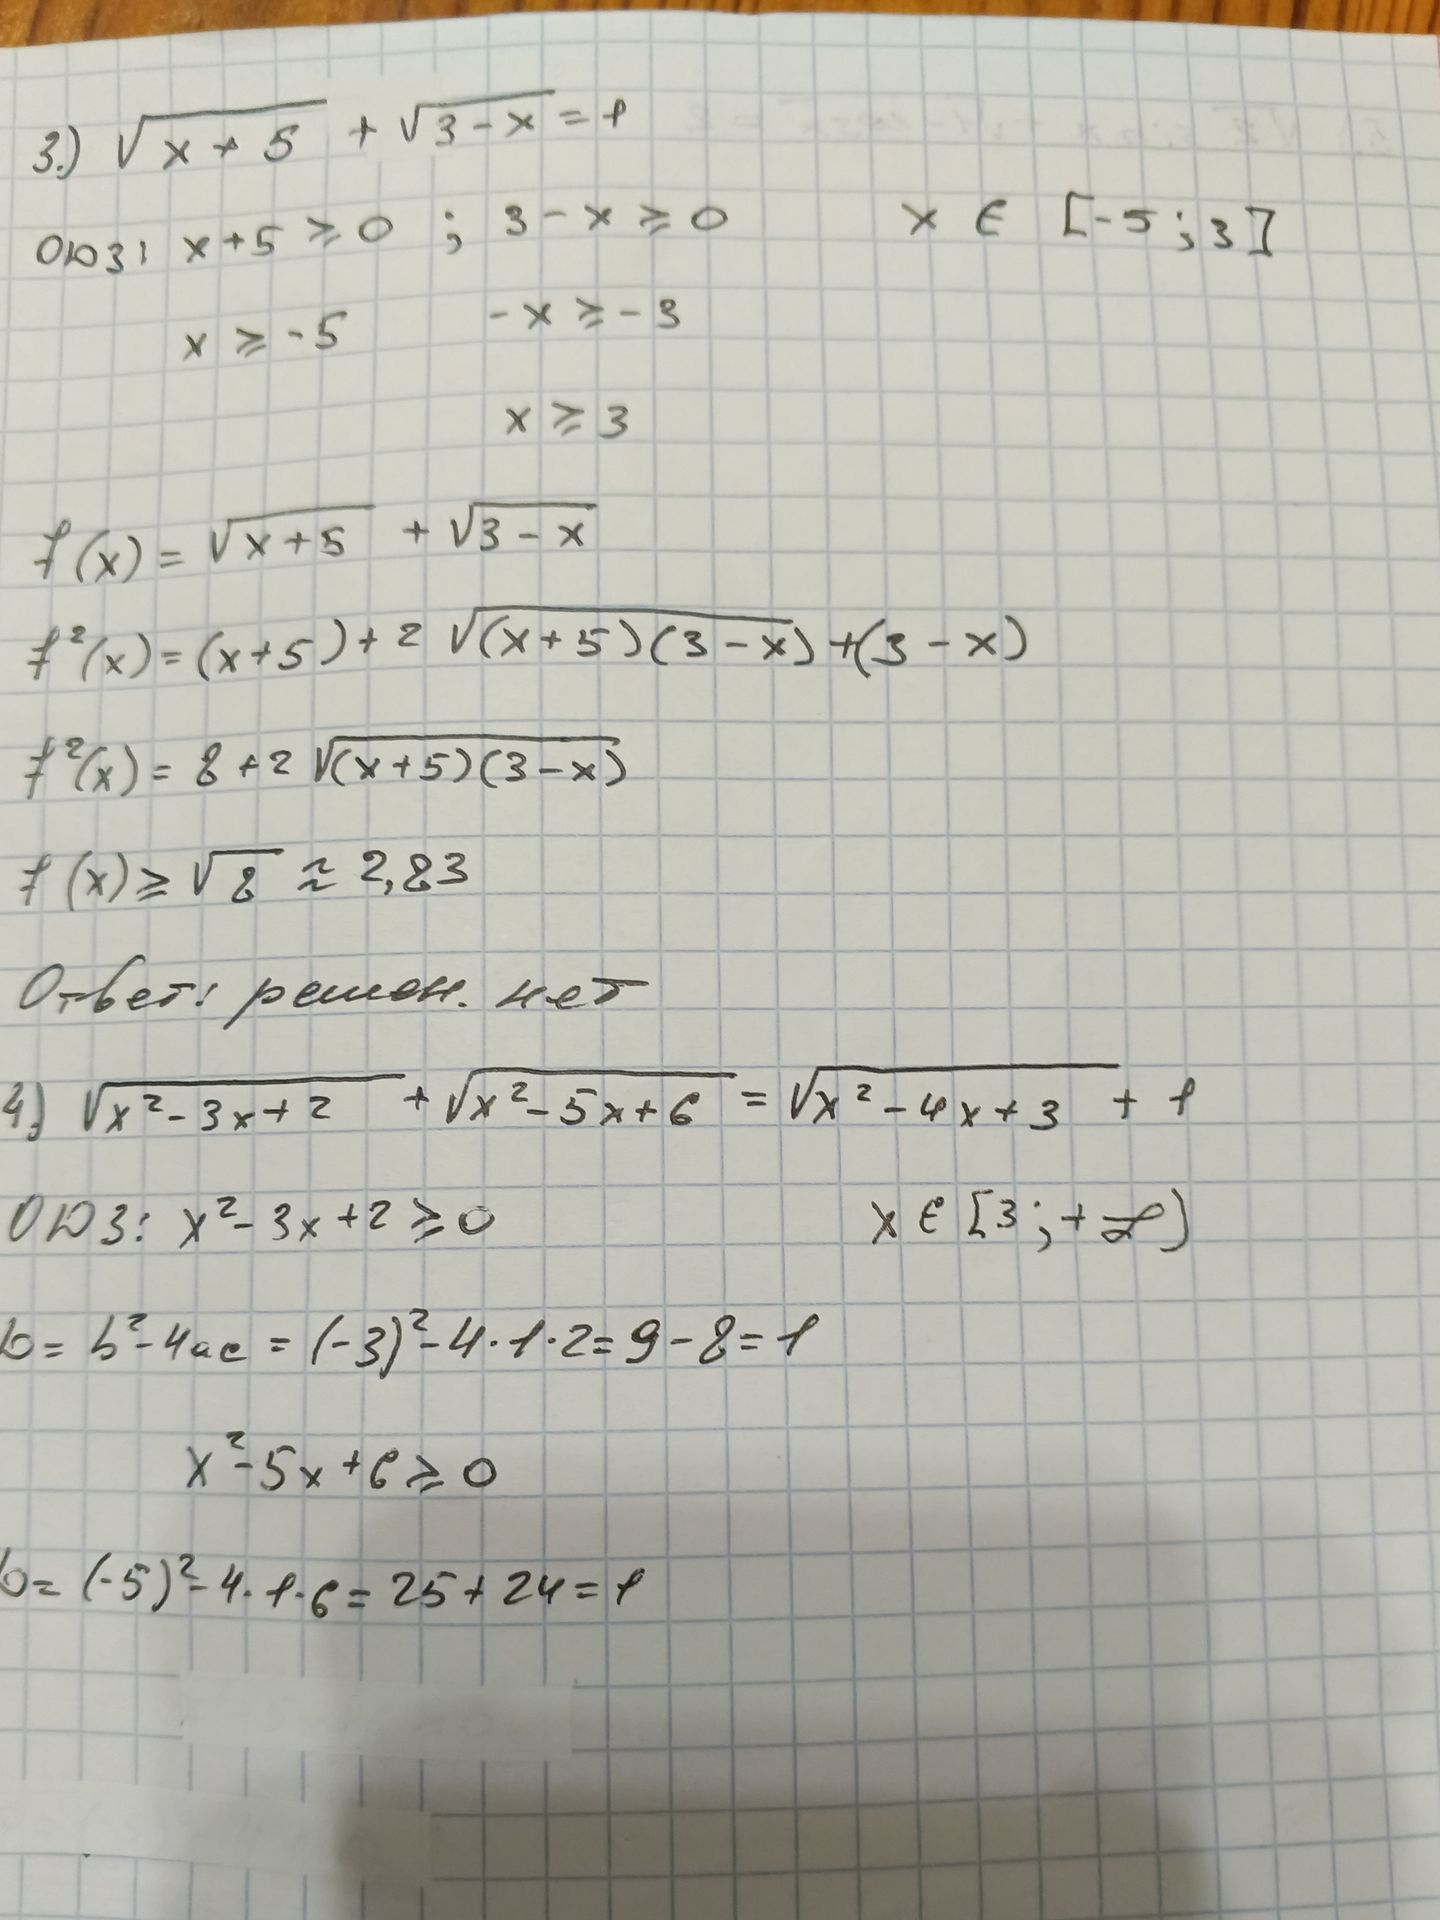 3.) √(x+5) + √(3-x) = 1
ОДЗ: x+5 ≥ 0 ; 3-x ≥ 0 x ∈ [-5; 3]
x ≥ -5 -x ≥ -3
x ≥ 3
f(x) = √(x+5) + √(3-x)
f²(x) = (x+5) + 2√((x+5)(3-x)) + (3-x)
f²(x) = 8 + 2√((x+5)(3-x))
f(x) ≥ √8 ≈ 2,83
Ответ: решен. нет
4) √(x²-3x+2) + √(x²-5x+6) = √(x²-4x+3) + 1
ОДЗ: x²-3x+2 ≥ 0 x ∈ [3; +∞)
D = b²-4ac = (-3)²-4·1·2 = 9-8 = 1
x²-5x+6 ≥ 0
D = (-5)²-4·1·6 = 25+24 = 1